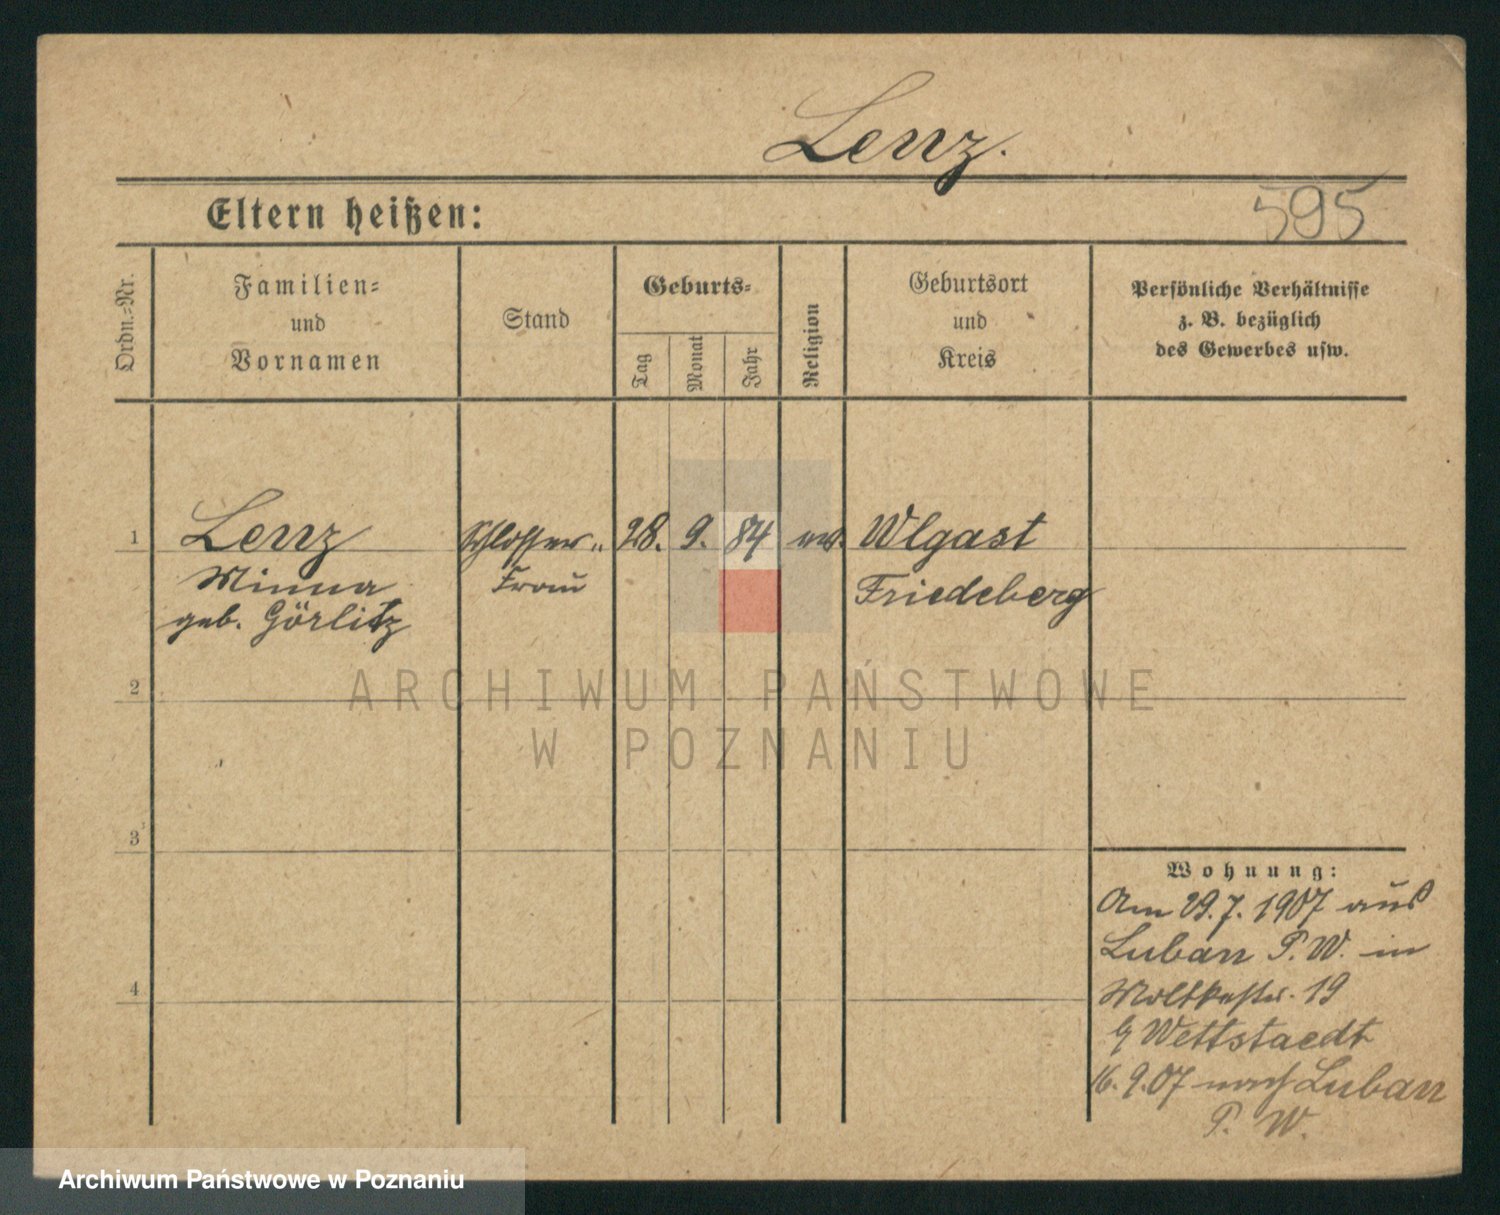 Lenz.
Eltern heißen:
595
Ordn.-Nr.
Familien-
und
Vornamen
Stand
Geburts-
Tag
Monat
Jahr
Religion
Geburtsort
und
Kreis
Persönliche Verhältnisse
z. B. bezüglich
des Gewerbes usw.
1
Lenz
Minna
geb. Görlitz
Schlosser-
Frau
28. 9. 84
ev.
Wlgast
Friedeberg
2
ARCHIWUM PAŃSTWOWE
W POZNANIU
3
4
Wohnung:
Am 29.7.1907 aus
Luban P. W. in
Moltkestr. 19
Wettstaedt
16.9.07 nach Luban
P. W.
Archiwum Państwowe w Poznaniu